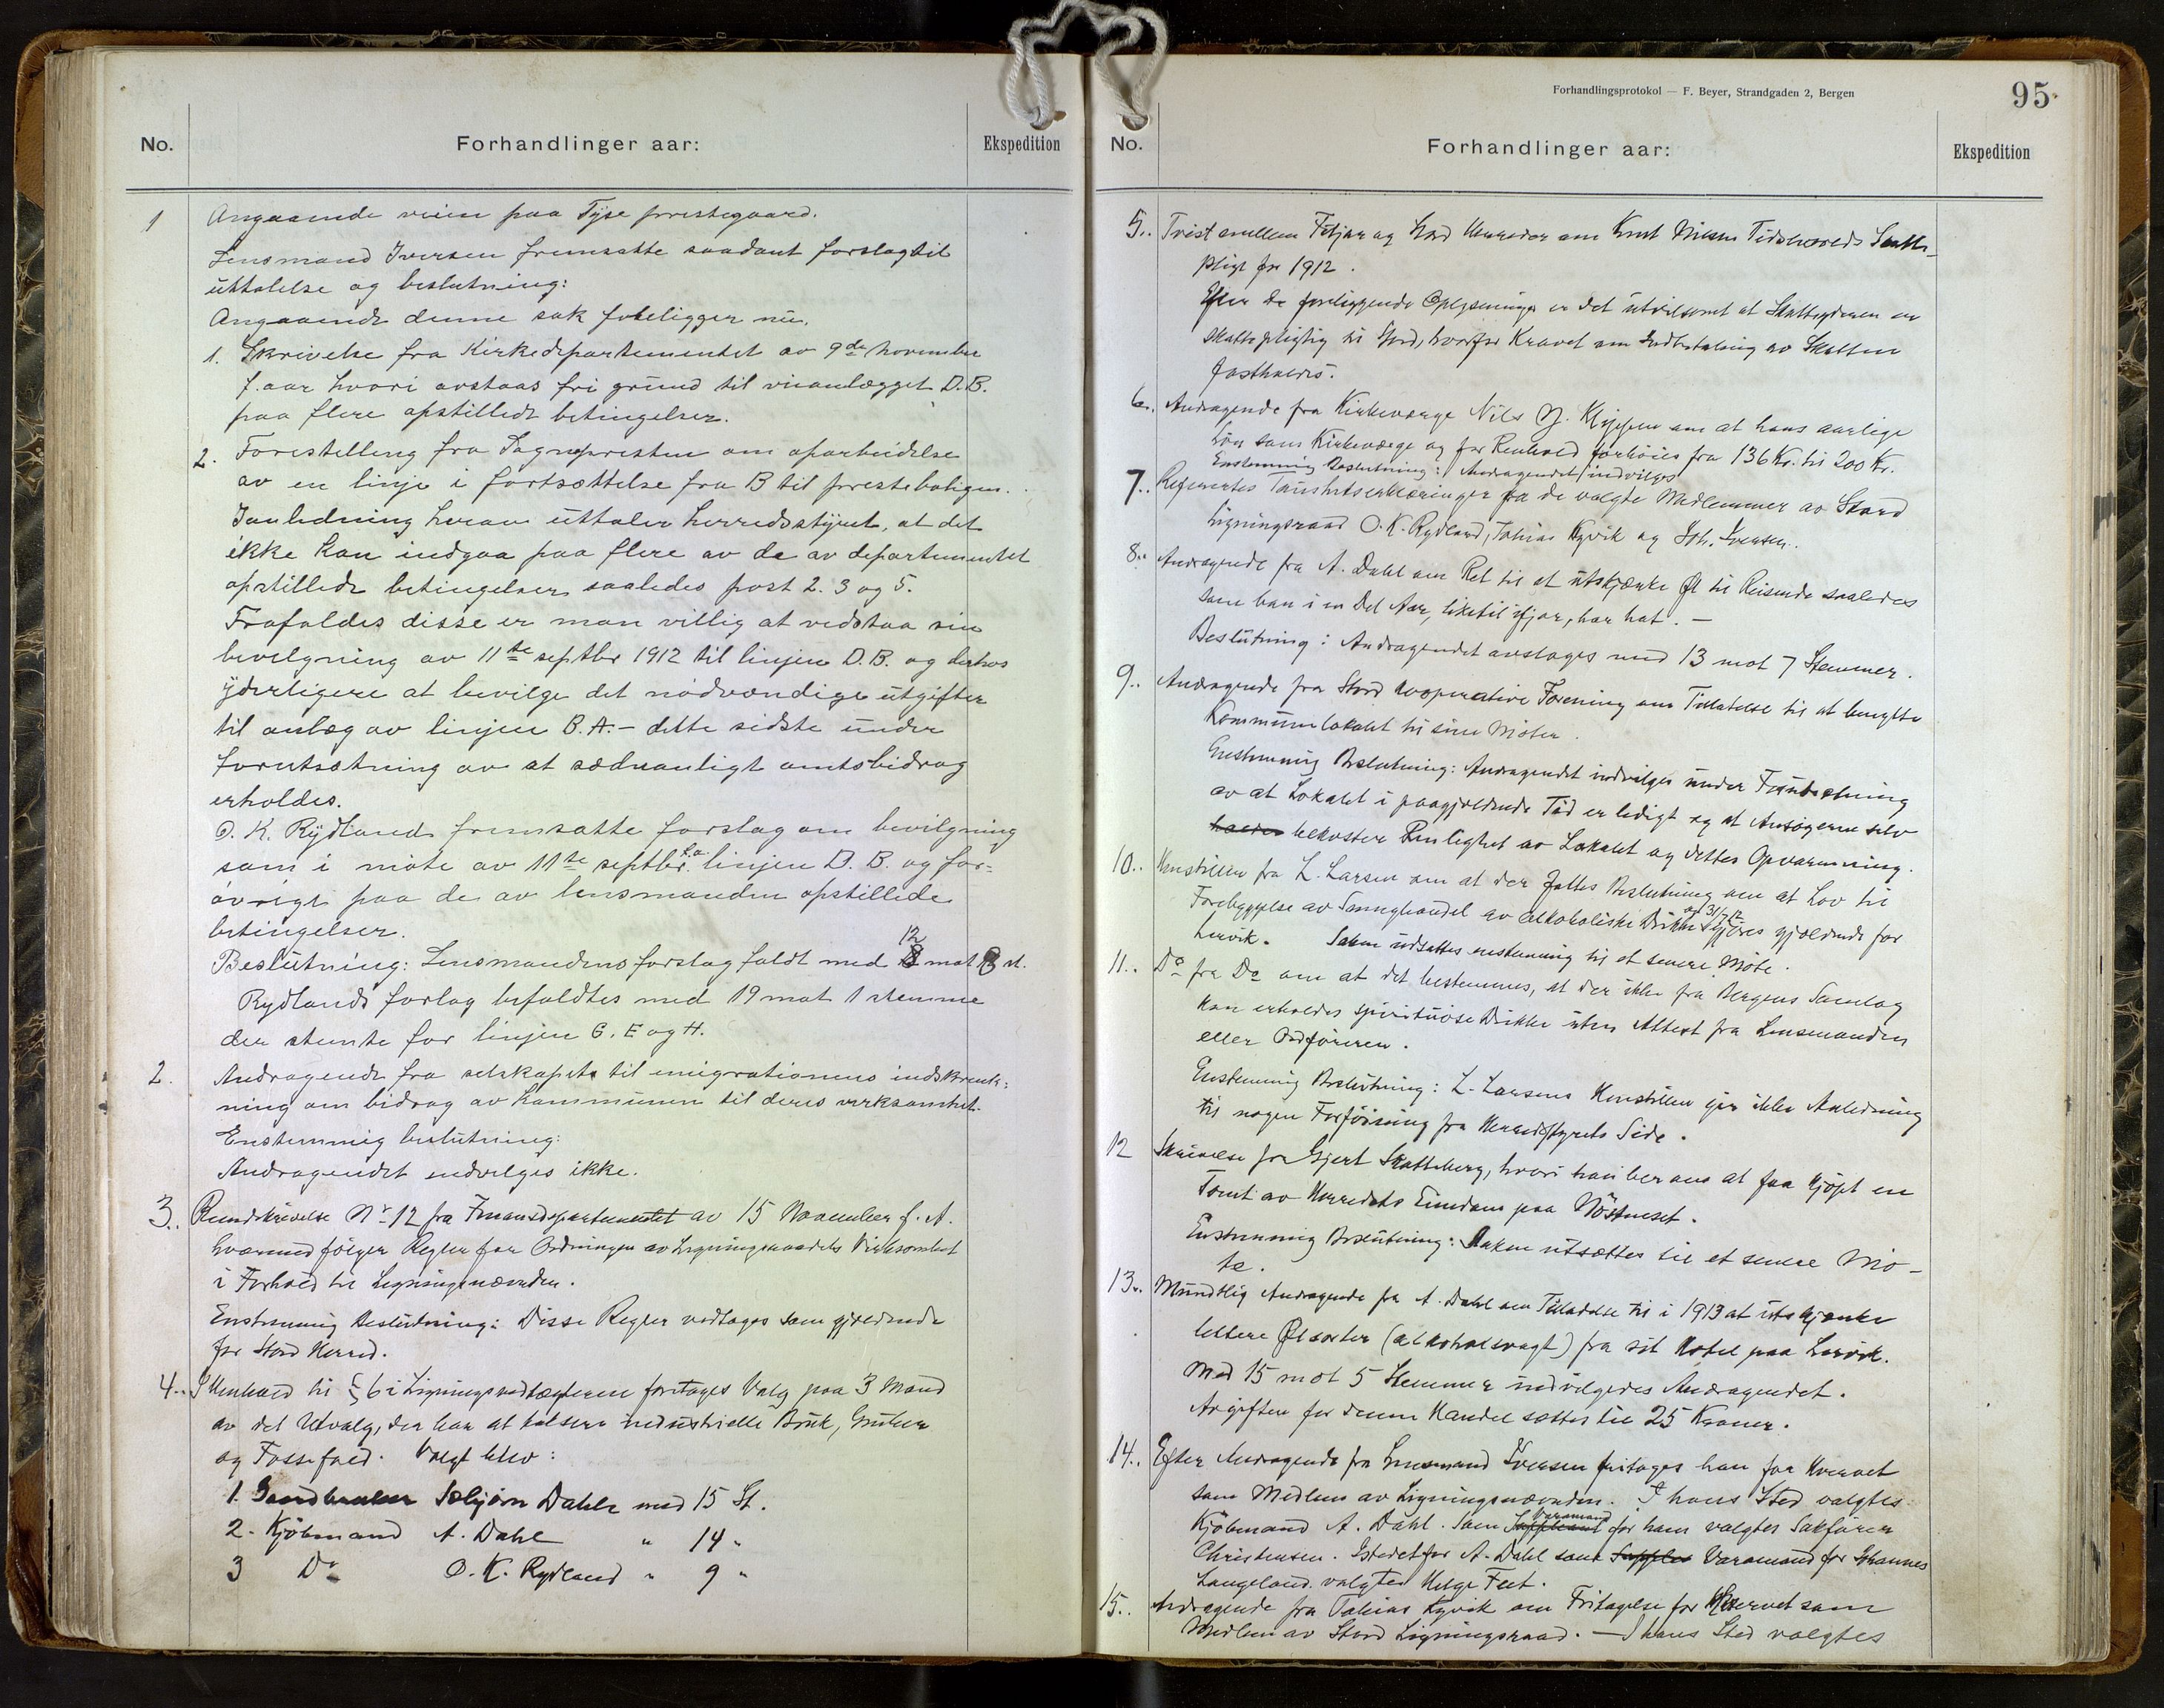 No.
Forhandlinger aar:
Ekspedition
1 Angaaende veien paa Tyse prestegaard.
Lensmand Iversen fremsatte saadant forslag til
uttalelse og beslutning:
Angaaende denne sak foreligger nu.
1. Skrivelse fra Kirkedepartementet av 9de november
f. aar hvori avstaas fri grund til veianlægget D.B.
paa flere opstillede betingelser.
2. Forestilling fra Sognepresten om oparbeidelse
av en linje i fortsættelse fra B til presteboligen.
I anledning herav uttaler herredsstyret, at det
ikke kan indgaa paa flere av de av departementet
opstillede betingelser saaledes post 2. 3 og 5.
Frafaldes disse er man villig at vedstaa sin
bevilgning av 11te septbr 1912 til linjen D.B. og derhos
yderligere at bevilge det nødvendige utgifter
til anlæg av linjen B.A. - dette sidste under
forutsætning av at sedvanligt amtsbidrag
erholdes.
O. K. Rydland fremsatte forslag om bevilgning
som i møte av 11te septbr. f.a. linjen D.B. og for=
øvrigt paa de av lensmanden opstillede
betingelser.
Beslutning: Lensmandens forslag faldt med 12 mot 8 st.
Rydlands forlag befaldtes med 19 mot 1 stemme
der stemte for linjen G. E og H.
2. Andragende fra selskapets til emigrationens indskrænk=
ning om bidrag av kommunen til deres verksomhet.
Enstemmig beslutning:
Andragendet indvilges ikke.
3. Rundskrivelse Nr 12 fra Finansdepartementet av 15 November f. A.
hvormed følger Regler for Ordningen av Ligningsraadets Virksomhet
i Forhold til Ligningsnævnden.
Enstemmig Beslutning: Disse Regler vedtages som gjældende
for Stord Herred.
4. I Henhold til § 6 i Ligningsvedtægterne foretages Valg paa 3 Mænd
av det Utvalg, der har at taksere industrielle Bruk, Gruber
og Fossefald. Valgt blev:
1. Gaardbruker Sæbjørn Dahle med 15 St.
2. Kjøbmand A. Dahl " 14 "
3 Do O. K. Rydland " 9 "
Forhandlingsprotokol — F. Beyer, Strandgaden 2, Bergen
95
No.
Forhandlinger aar:
Ekspedition
5. Tvist mellem Fitjar og Stord Herreder om Knut Nilsen Skatte-
pligt for 1912.
Efter de foreliggende Oplysninger er det utvilsomt at Skatteyderen er
skattepligtig til Stord, hvorfor Kravet om Indbetaling av Skatten
fastholdes.
6. Andragende fra Kirkeværge Nils J. Klippen om at hans aarlige
Løn som Kirkeværge og for Renhold forhøies fra 136 Kr. til 200 Kr.
Enstemmig Beslutning: Andragendet indvilges
7. Refereertes Taushetserklæringer fra de valgte Medlemmer av Stord
Ligningsraad O. K. Rydland, Tobias Kyvik og Joh. Iversen.
8. Andragende fra A. Dahl om Ret til at utskjænke Øl til Reisende saaledes
som han i en Del Aar, liketil ifjor, har hat. -
Beslutning: Andragendet avslages med 13 mot 7 Stemmer.
9. Andragende fra Stord Kooperative Forening om Tillatelse til at benytte
Kommunelokalet til sine Møter.
Enstemmig Beslutning: Andragendet indvilges under Forutsetning
av at Lokalet i paagjældende Tid er ledigt og at Ansøgerne selv
bekoster Renlighet av Lokalet og dettes Opvarmning.
10. Henstillen fra L. Larsen om at der fattes Beslutning om at Lov til
Forebyggelse av Smughandel av alkoholiske Drikke av 31/7 12 gjøres gjældende for
Lervik. Saken utsattes enstemmig til et senere Møte.
11. Do fra Do om at det bestemmes, at der ikke fra Bergens Samlag
kan erholdes spirituøse Drikke uten Attest fra Lensmanden
eller Ordføreren.
Enstemmig Beslutning: L. Larsens Henstillen gir ikke Anledning
til nogen Forføining fra Herredsstyrets Side.
12 Skrivelse fra Gjert Skatteberg, hvori han ber om at faa kjøpt en
Tomt av Herredets Eiendom paa Nøstneset.
Enstemmig Beslutning: Saken utsættes til et senere Mø-
te.
13. Mundtlig Andragende fra A. Dahl om Tilladelse til i 1913 at utskjænke
lettere Ølsorter (alkoholsvagt) fra sit Hotel paa Lervik.
Med 15 mot 5 Stemmer indvilgedes Andragendet.
Avgiften for denne Handel sættes til 25 Kroner.
14. Efter Andragende fra Lensmand Iversen fritages han for Hvervet
som Medlem av Ligningsnævnden. I hans Sted valgtes
Kjøbmand A. Dahl. Som Suppleant Varamand for ham valgtes Sakfører
Christensen. Istedetfor A. Dahl som Varamand for Johannes
Langeland valgtes Helge Feet.
15. Andragende fra Tobias Kyvik om Fritagelse for Hvervet som
Medlem av Stord Ligningsraad. - I hans Sted valgtes